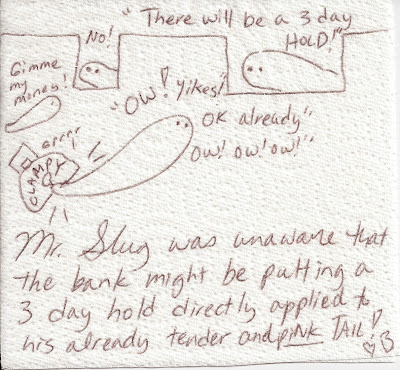 "There will be a 3 day
HOLD!"
No!
Gimme
my
money!
"OW! Yikes!"
OK already"
OW! OW! OW!"
Grrrr
CLAMPY
Mr. Slug was unaware that
the bank might be putting a
3 day hold directly applied to
his already tender and pINK TAIL!